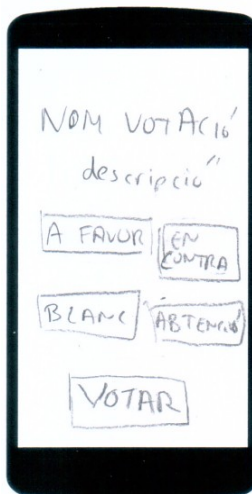 NOM VOTACIÓ
descripció
A FAVOR
EN CONTRA
BLANC
ABTENCIÓ
VOTAR